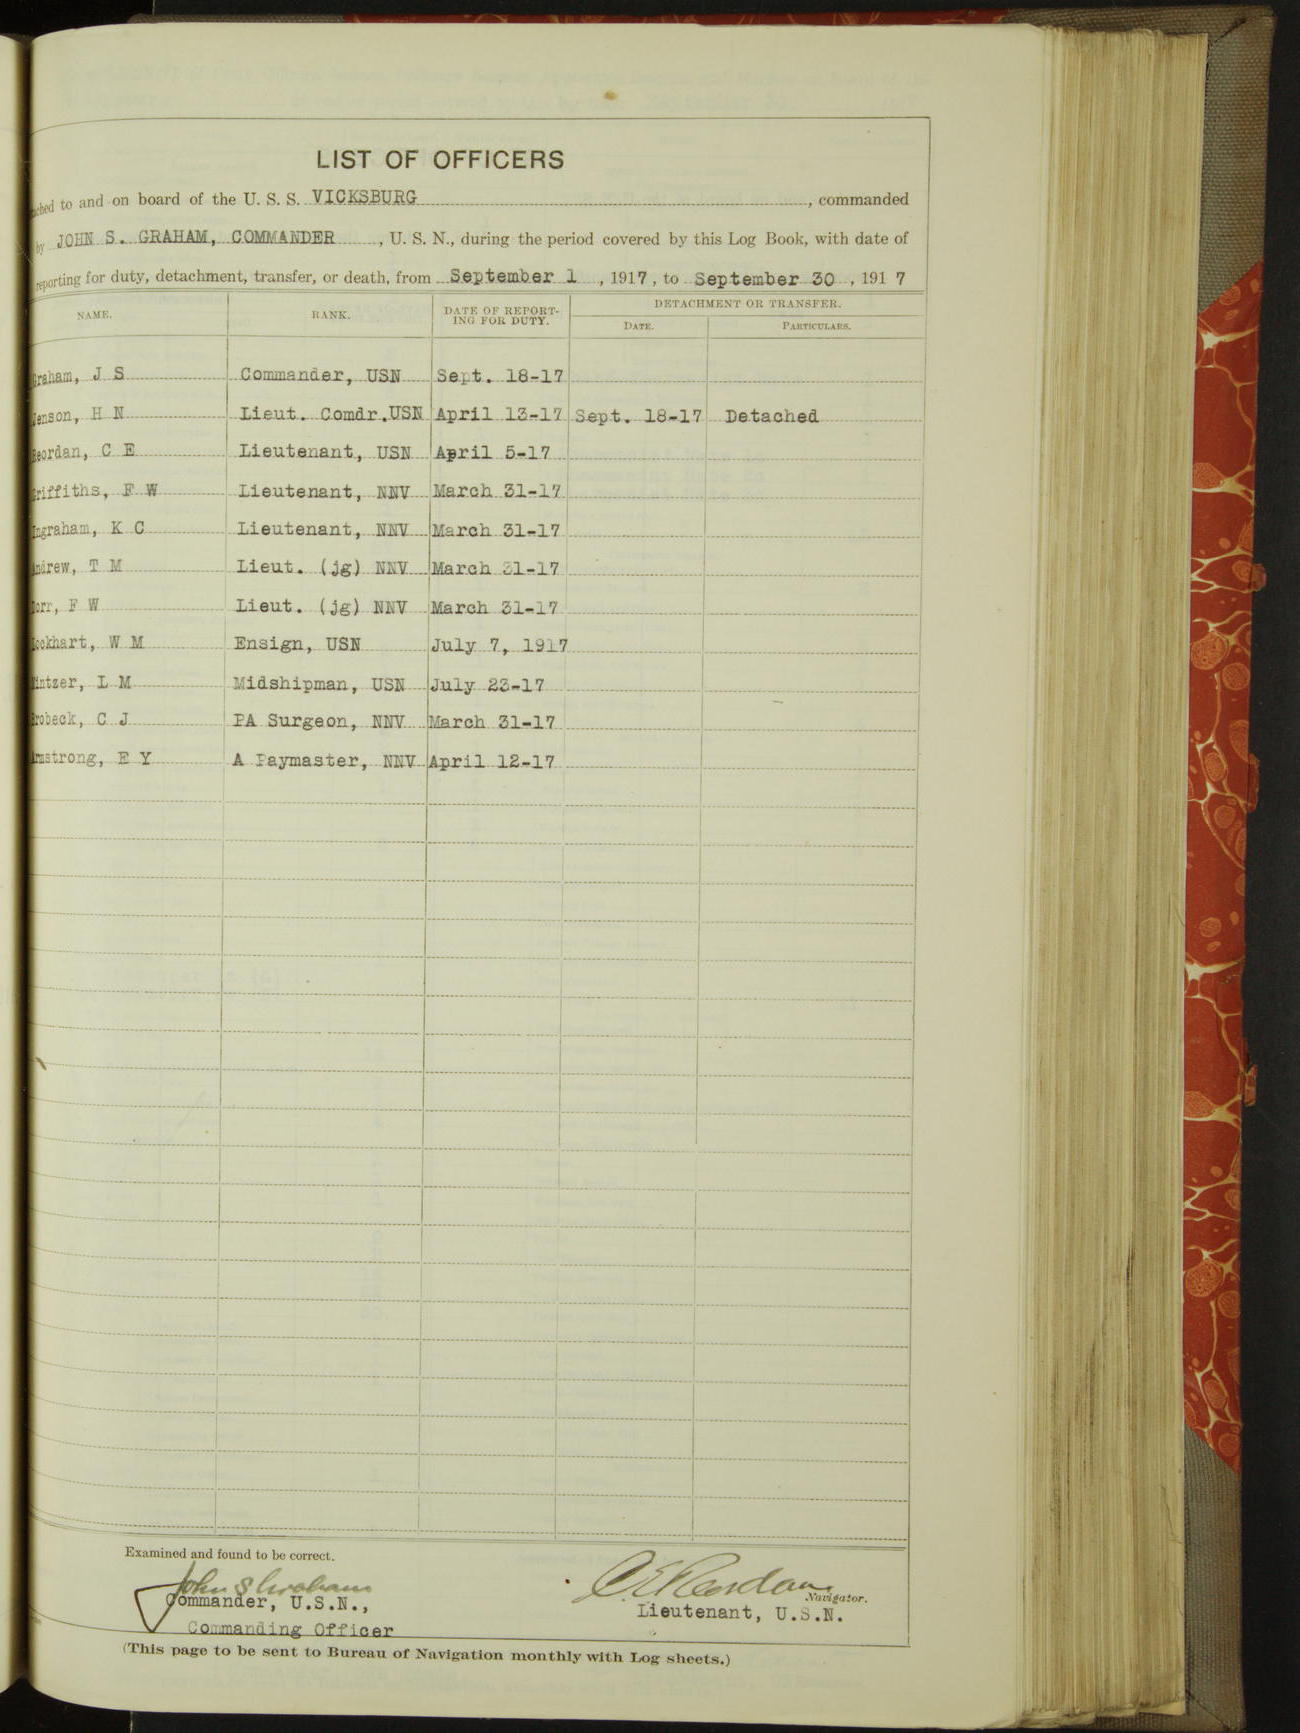 LIST OF OFFICERS
ached to and on board of the U. S. S. VICKSBURG, commanded
by JOHN S. GRAHAM, COMMANDER, U. S. N., during the period covered by this Log Book, with date of
reporting for duty, detachment, transfer, or death, from September 1, 1917, to September 30, 1917
NAME. RANK. DATE OF REPORT-ING FOR DUTY. DETACHMENT OR TRANSFER.
DATE. PARTICULARS.
Graham, J S Commander, USN Sept. 18-17
Jenson, H N Lieut. Comdr.USN April 13-17 Sept. 18-17 Detached
Reordan, C E Lieutenant, USN April 5-17
Griffiths, F W Lieutenant, NNV March 31-17
Ingraham, K C Lieutenant, NNV March 31-17
Andrew, T M Lieut. (jg) NNV March 31-17
Dorr, F W Lieut. (jg) NNV March 31-17
Lockhart, W M Ensign, USN July 7, 1917
Mintzer, L M Midshipman, USN July 23-17
Brobeck, C J PA Surgeon, NNV March 31-17
Armstrong, E Y A Paymaster, NNV April 12-17
Examined and found to be correct.
John S Graham C E Reordan
Navigator.
Commander, U.S.N., Lieutenant, U.S.N.
Commanding Officer
(This page to be sent to Bureau of Navigation monthly with Log sheets.)